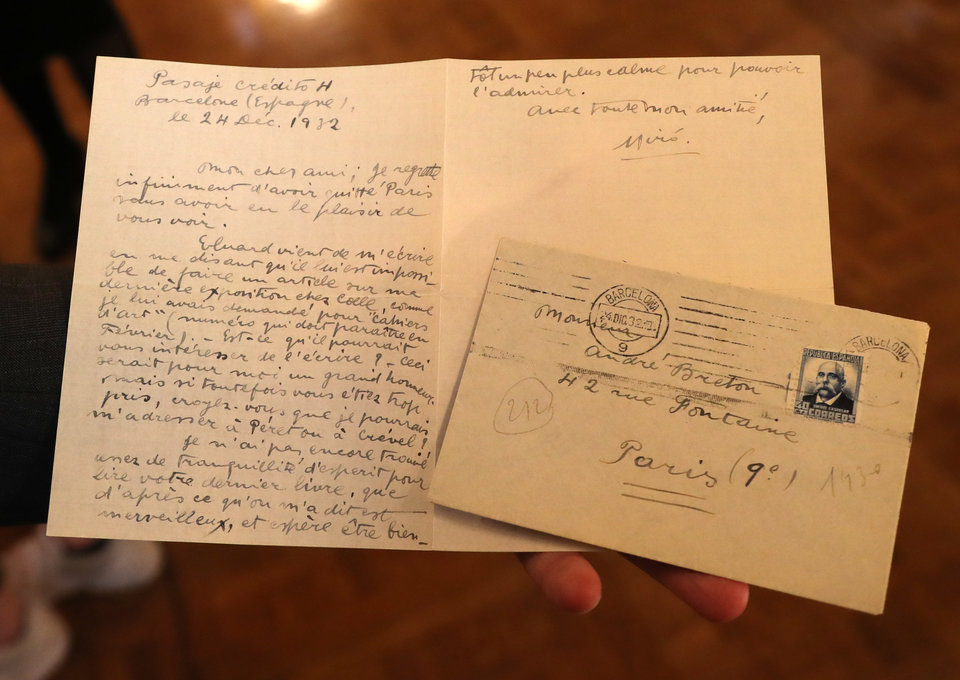 Pasaje crédito 4
Barcelone (Espagne).
le 24 Déc. 1932
Mon cher ami; je regrette
infiniment d'avoir quitté Paris
sans avoir eu le plaisir de
vous voir.
Eluard vient de m'écrire
en me disant qu'il lui est impossi-
ble de faire un article sur ma
dernière exposition chez Colle, comme
je lui avais demandé pour "Cahiers
d'art" (numéro qui doit paraître en
Février). - Est-ce qu'il pourrait
vous intéresser de l'écrire? - Ceci
serait pour moi un grand honneur,
mais si toutefois vous étiez trop
pris, croyez-vous que je pourrais
m'adresser à Péret ou à Crével?
Je n'ai pas encore trouvé
assez de tranquillité d'esperit pour
lire votre dernier livre, que
d'après ce qu'on m'a dit est
merveilleux, et espère être bien-
tôt un peu plus calme pour pouvoir
l'admirer.
Avec toute mon amitié,
Miró.
BARCELONA
DIC 32
9
Monsieur
André Breton
42 rue Fontaine
Paris (9e)
212
BARCELONA
REPUBLICA ESPAÑOLA
CORREOS